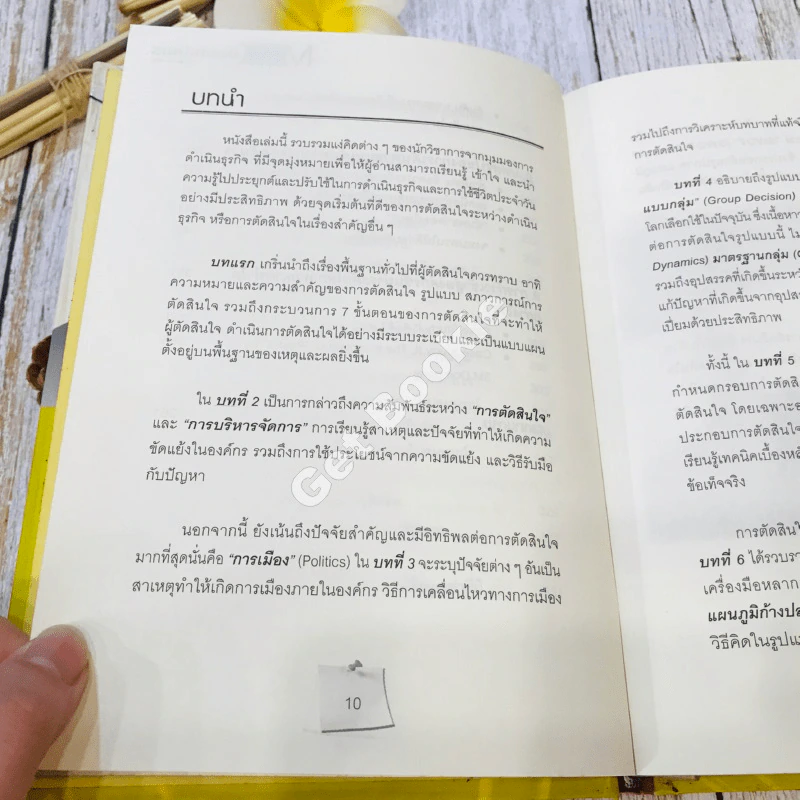 บทนำ
หนังสือเล่มนี้ รวบรวมแง่คิดต่าง ๆ ของนักวิชาการจากมุมมองการ
ดำเนินธุรกิจ ที่มีจุดมุ่งหมายเพื่อให้ผู้อ่านสามารถเรียนรู้ เข้าใจ และนำ
ความรู้ไปประยุกต์และปรับใช้ในการดำเนินธุรกิจและการใช้ชีวิตประจำวัน
อย่างมีประสิทธิภาพ ด้วยจุดเริ่มต้นที่ดีของการตัดสินใจระหว่างดำเนิน
ธุรกิจ หรือการตัดสินใจในเรื่องสำคัญอื่น ๆ
บทแรก เกริ่นนำถึงเรื่องพื้นฐานทั่วไปที่ผู้ตัดสินใจควรทราบ อาทิ
ความหมายและความสำคัญของการตัดสินใจ รูปแบบ สภาวการณ์การ
ตัดสินใจ รวมถึงกระบวนการ 7 ขั้นตอนของการตัดสินใจที่จะทำให้
ผู้ตัดสินใจ ดำเนินการตัดสินใจได้อย่างมีระบบระเบียบและเป็นแบบแผน
ตั้งอยู่บนพื้นฐานของเหตุและผลยิ่งขึ้น
ใน บทที่ 2 เป็นการกล่าวถึงความสัมพันธ์ระหว่าง “การตัดสินใจ”
และ “การบริหารจัดการ” การเรียนรู้สาเหตุและปัจจัยที่ทำให้เกิดความ
ขัดแย้งในองค์กร รวมถึงการใช้ประโยชน์จากความขัดแย้ง และวิธีรับมือ
กับปัญหา
นอกจากนี้ ยังเน้นถึงปัจจัยสำคัญและมีอิทธิพลต่อการตัดสินใจ
มากที่สุดนั่นคือ “การเมือง” (Politics) ใน บทที่ 3 จะระบุปัจจัยต่าง ๆ อันเป็น
สาเหตุทำให้เกิดการเมืองภายในองค์กร วิธีการเคลื่อนไหวทางการเมือง
10
Get Bookie
รวมไปถึงการวิเคราะห์บทบาทที่แท้จ
การตัดสินใจ
บทที่ 4 อธิบายถึงรูปแบบ
แบบกลุ่ม” (Group Decision)
โลกเลือกใช้ในปัจจุบัน ซึ่งเนื้อหา
ต่อการตัดสินใจรูปแบบนี้ ไม
Dynamics) มาตรฐานกลุ่ม (
รวมถึงอุปสรรคที่เกิดขึ้นระหว
แก้ปัญหาที่เกิดขึ้นจากอุปส
เปี่ยมด้วยประสิทธิภาพ
ทั้งนี้ ใน บทที่ 5
กำหนดกรอบการตัดสิน
ตัดสินใจ โดยเฉพาะอ
ประกอบการตัดสินใจ
เรียนรู้เทคนิคเบื้องหล
ข้อเท็จจริง
การตัดสินใ
บทที่ 6 ได้รวบรว
เครื่องมือหลาก
แผนภูมิก้างปล
วิธีคิดในรูปแ